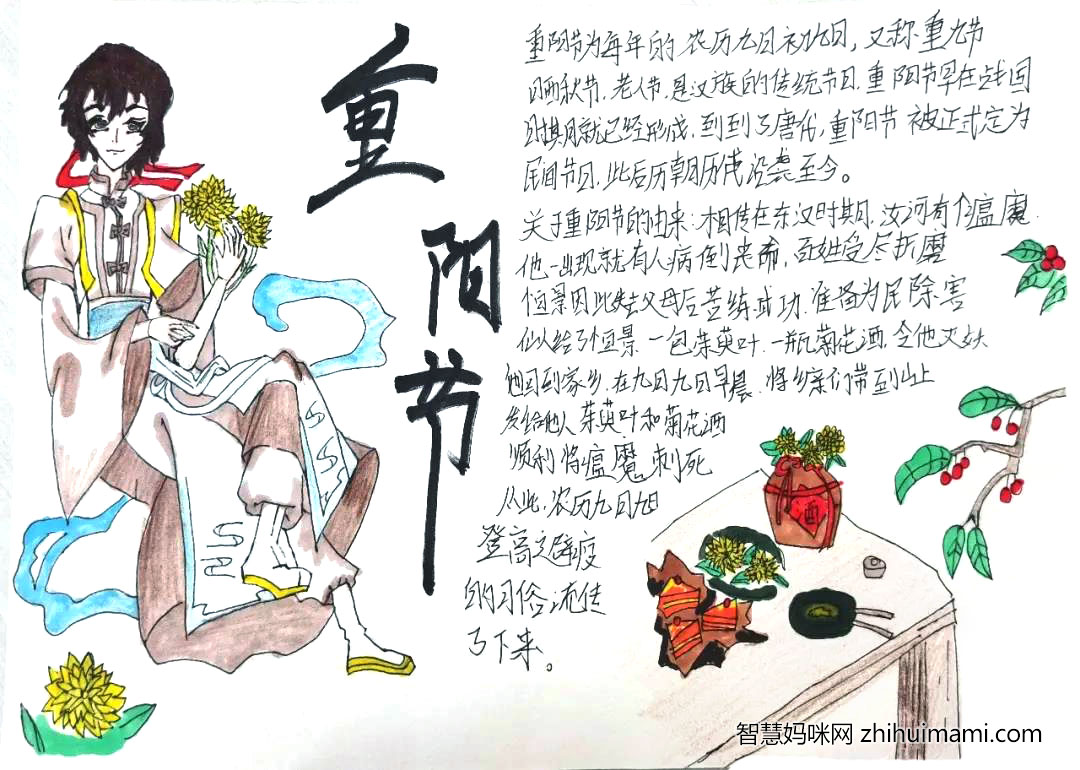 重阳节
重阳节为每年的农历九日初九日，又称重九节
晒秋节.老人节.是汉族的传统节日.重阳节早在战国
时期就已经形成.到到了唐代，重阳节被正式定为
民间节日.此后历朝历代沿袭至今。
关于重阳节的由来:相传在东汉时期.汝河有个瘟魔.
他一出现就有人病倒丧命，百姓受尽折魔
恒景因此失去父母后苦练成功.准备为民除害
仙人给了恒景.一包茱萸叶.一瓶菊花酒.令他灭妖
他回到家乡.在九月九日早晨.将乡亲们带到山上
发给他人茱萸叶和菊花酒
顺利将瘟魔刺死
从此.农历九月九日
登高之辟疫
的习俗流传
了下来。
酒
智慧妈咪网 zhihuimami.com